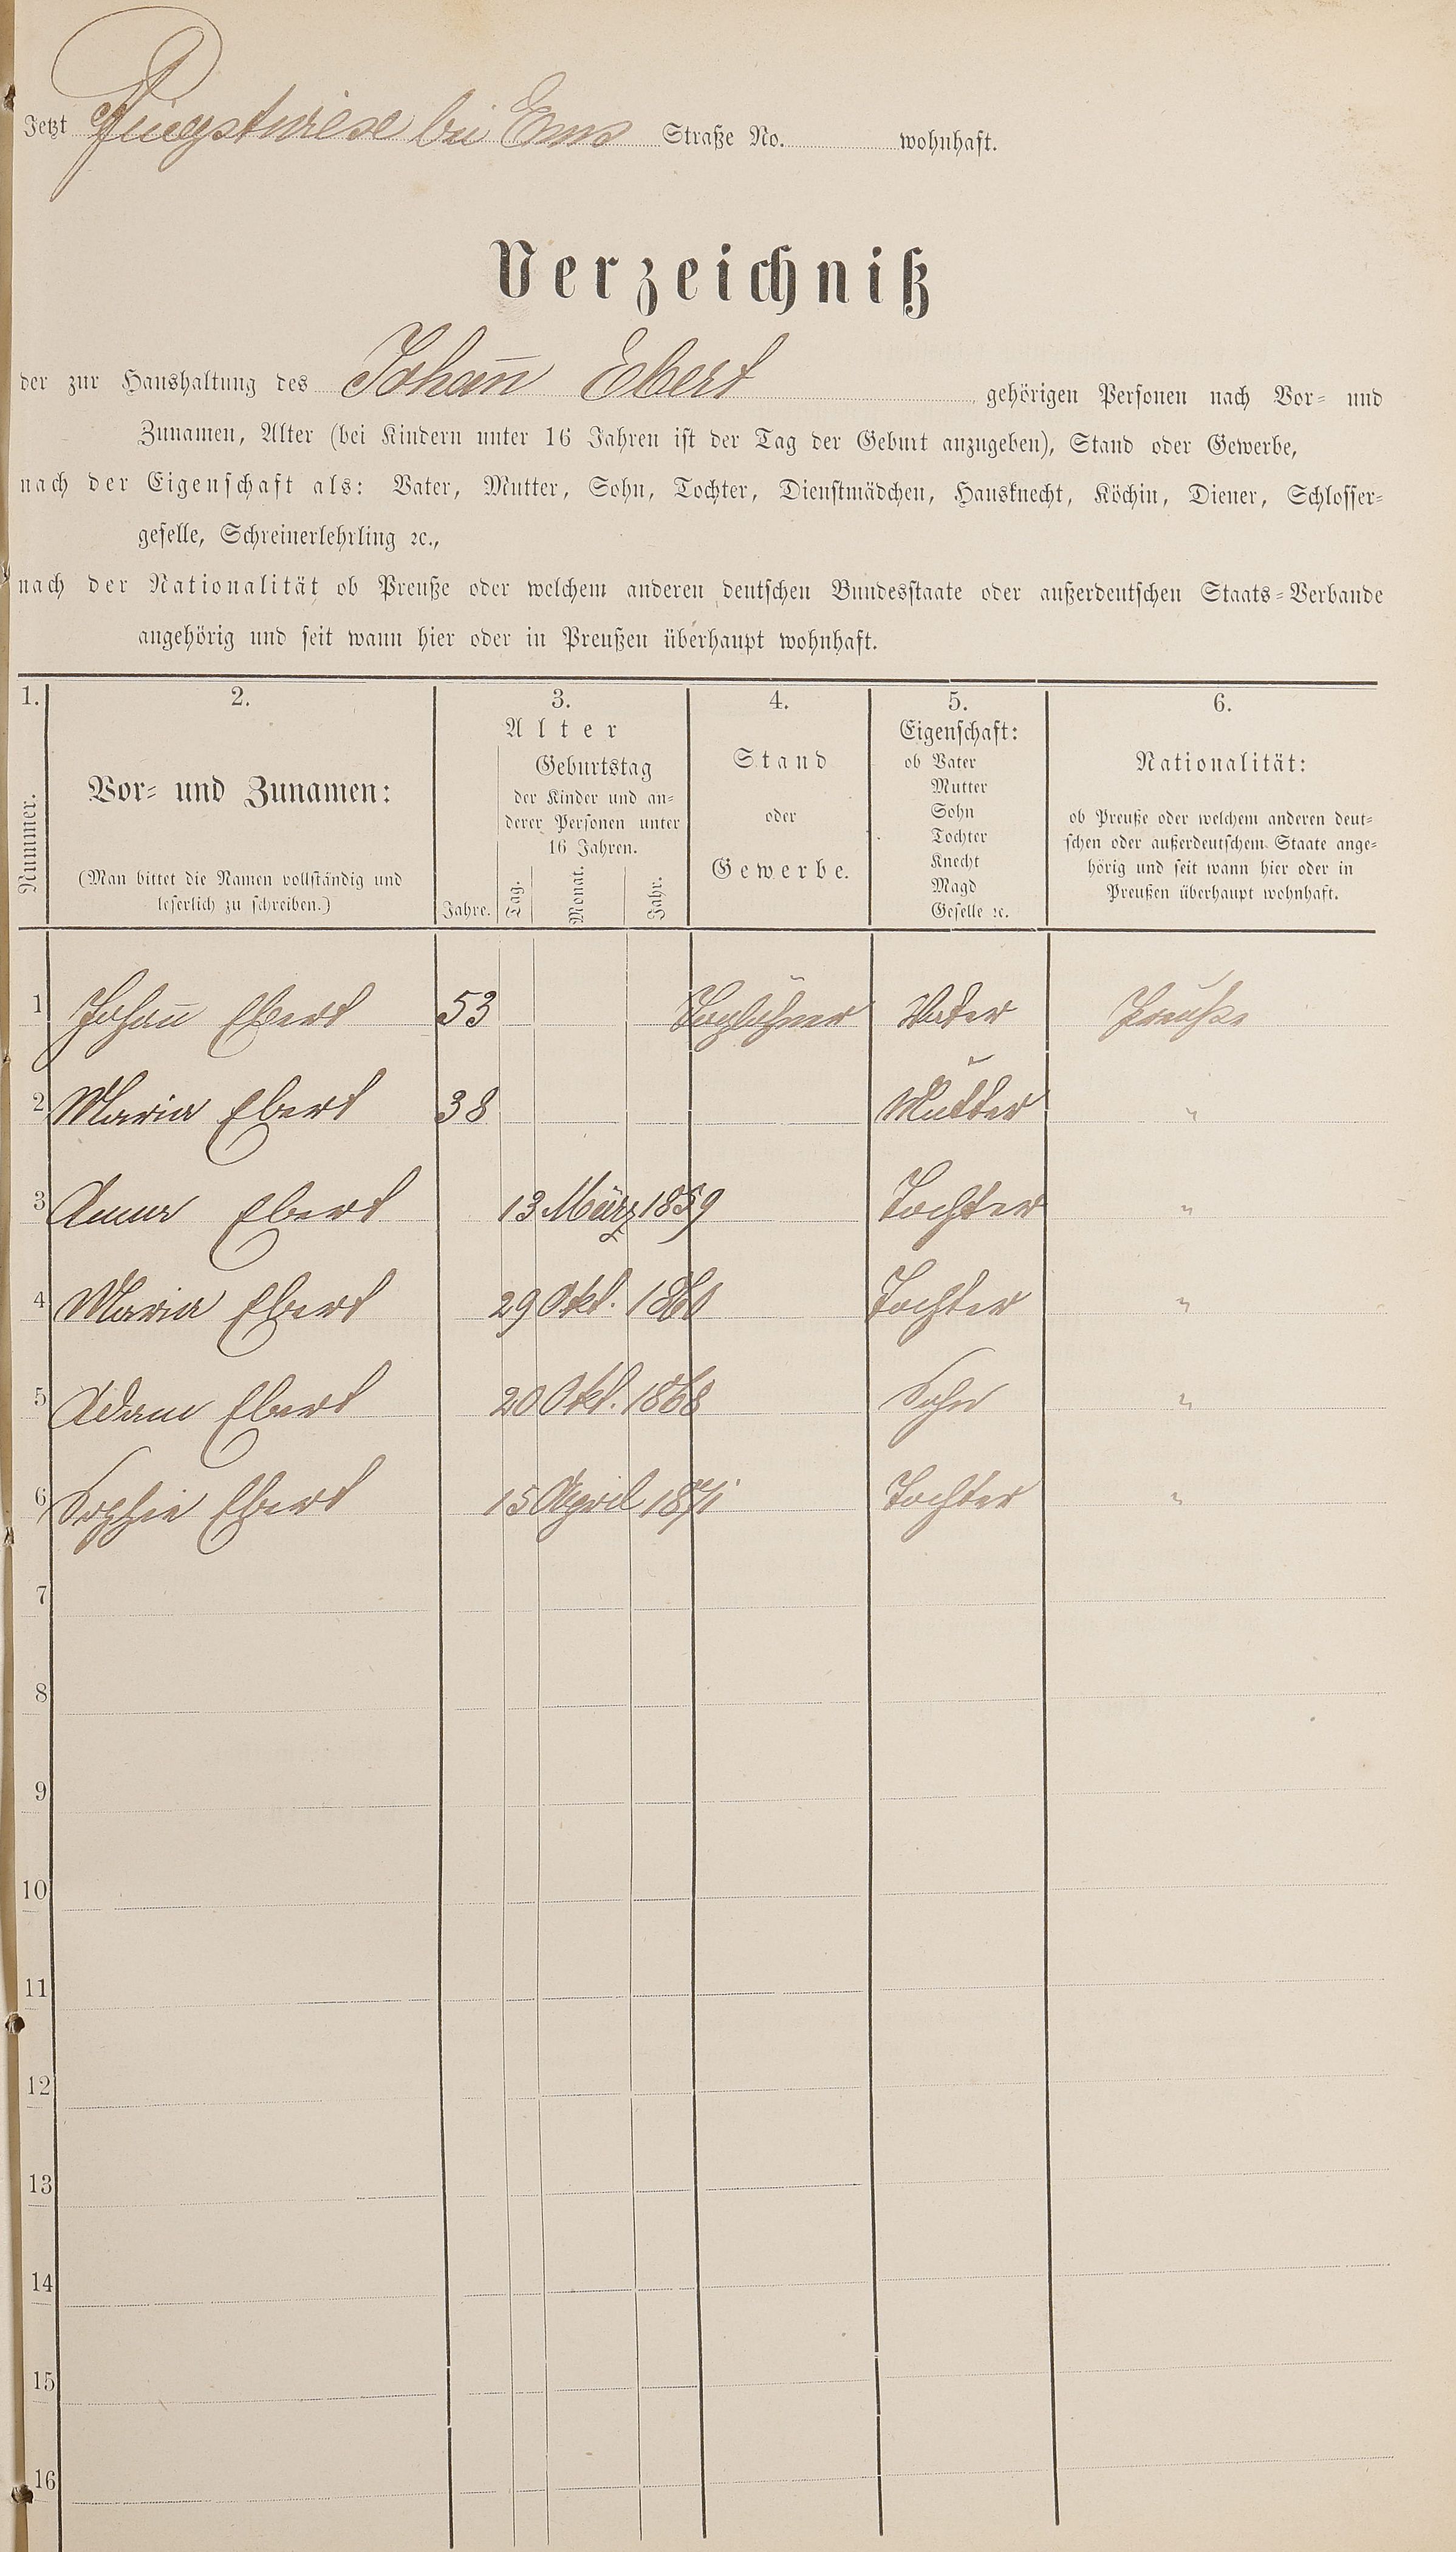 Jetzt Pfingstwiese bei Ems Straße No. wohnhaft.
Verzeichniß
der zur Haushaltung des Johan̅ Ebert gehörigen Personen nach Vor- und
Zunamen, Alter (bei Kindern unter 16 Jahren ist der Tag der Geburt anzugeben), Stand oder Gewerbe,
nach der Eigenschaft als: Vater, Mutter, Sohn, Tochter, Dienstmädchen, Hausknecht, Köchin, Diener, Schlosser-
geselle, Schreinerlehrling ꝛc.,
nach der Nationalität ob Preuße oder welchem anderen deutschen Bundesstaate oder außerdeutschen Staats-Verbande
angehörig und seit wann hier oder in Preußen überhaupt wohnhaft.
1. 2. 3. 4. 5. 6.
Nummer.
Vor- und Zunamen:
(Man bittet die Namen vollständig und
leserlich zu schreiben.)
Alter
Geburtstag
der Kinder und an-
derer Personen unter
16 Jahren.
Jahre. Tag. Monat. Jahr.
Stand
oder
Gewerbe.
Eigenschaft:
ob Vater
Mutter
Sohn
Tochter
Knecht
Magd
Geselle ꝛc.
Nationalität:
ob Preuße oder welchem anderen deut-
schen oder außerdeutschem Staate ange-
hörig und seit wann hier oder in
Preußen überhaupt wohnhaft.
1 Johan̅ Ebert 53 Taglöhner Vater Preuße
2 Maria Ebert 38 Mutter "
3 Anna Ebert 13 März 1859 Tochter "
4 Maria Ebert 29 Okt. 1860 Tochter "
5 Adam Ebert 20 Okt. 1868 Sohn "
6 Sophie Ebert 15 April 1871 Tochter "
7
8
9
10
11
12
13
14
15
16